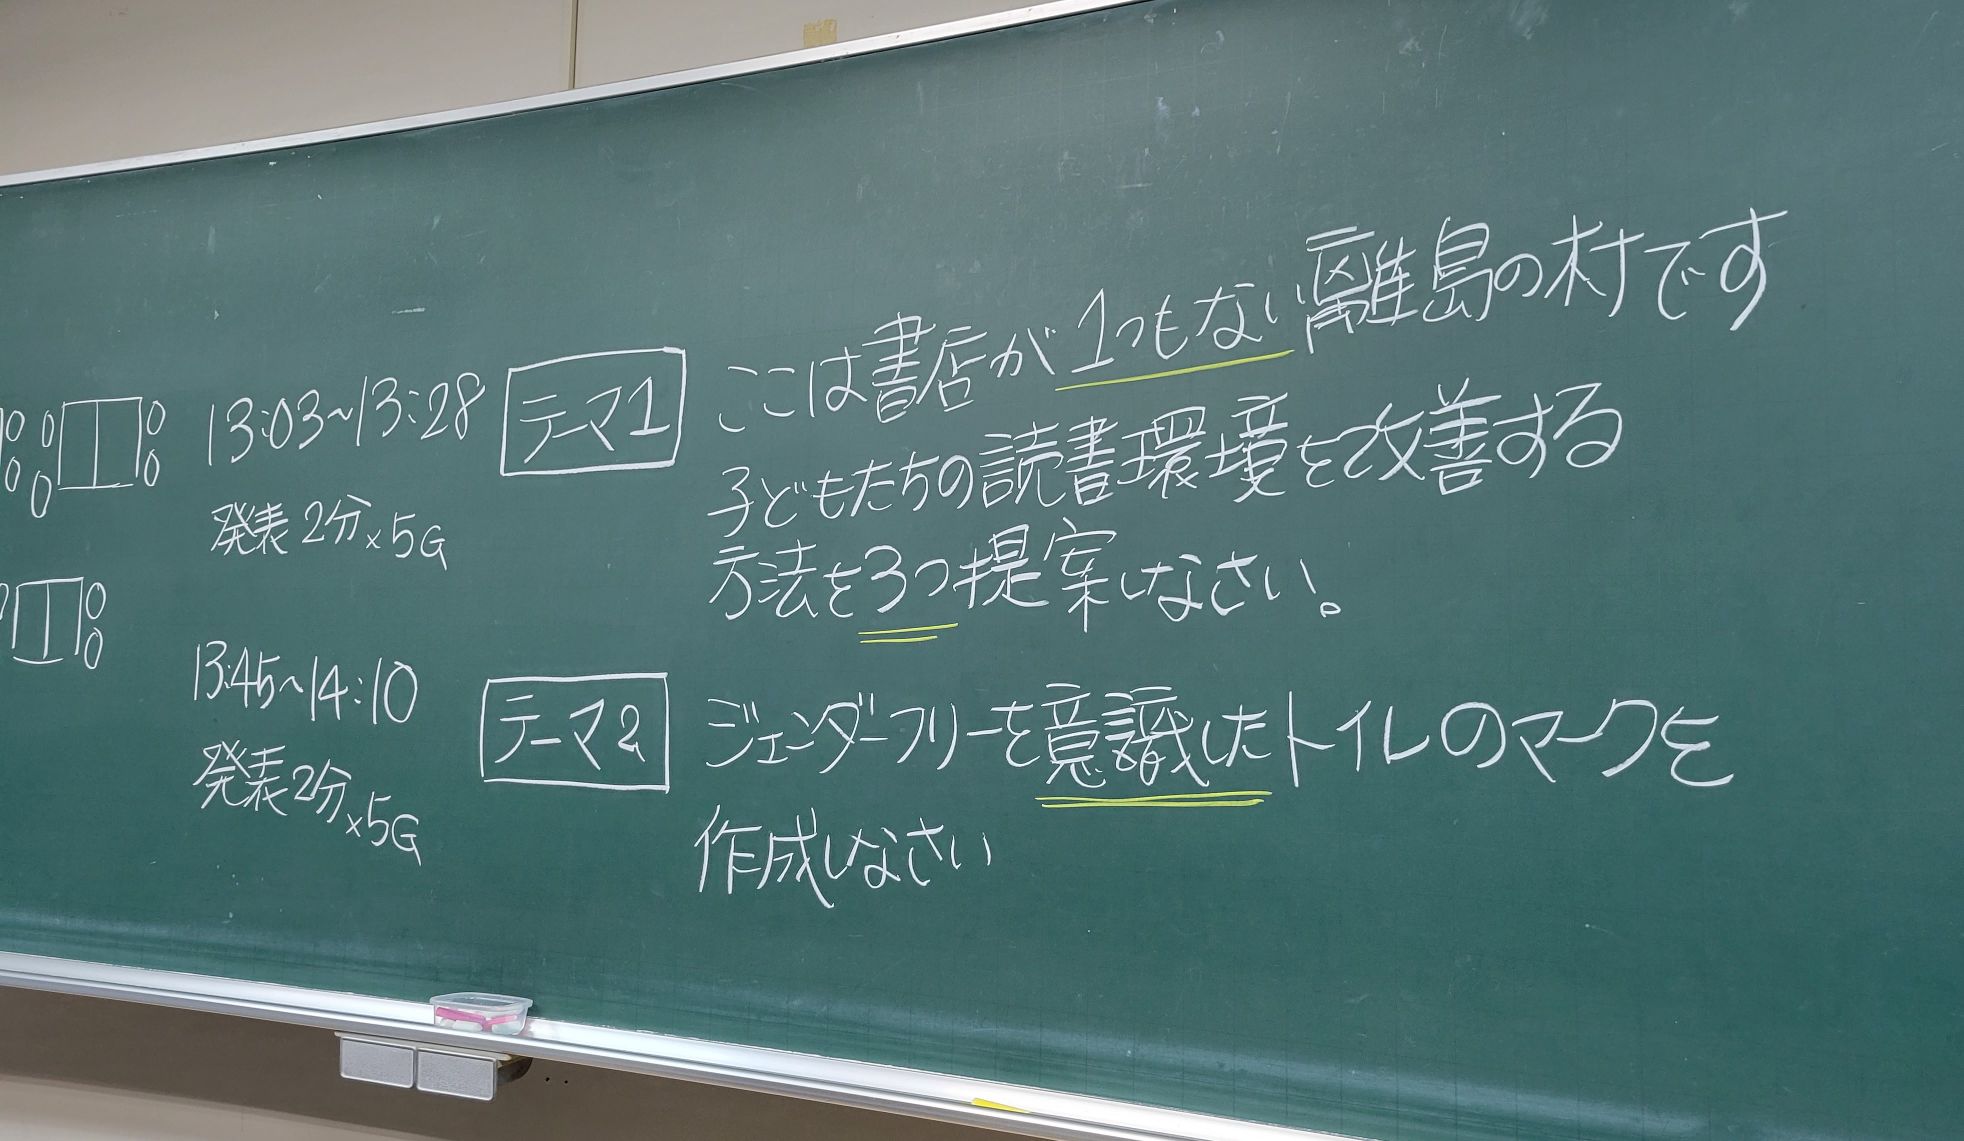 13:03~13:28
発表2分×5G
テーマ1
ここは書店が1つもない離島の村です
子どもたちの読書環境を改善する
方法を3つ提案しなさい。
13:45~14:10
発表2分×5G
テーマ2
ジェンダーフリーを意識したトイレのマークを
作成しなさい